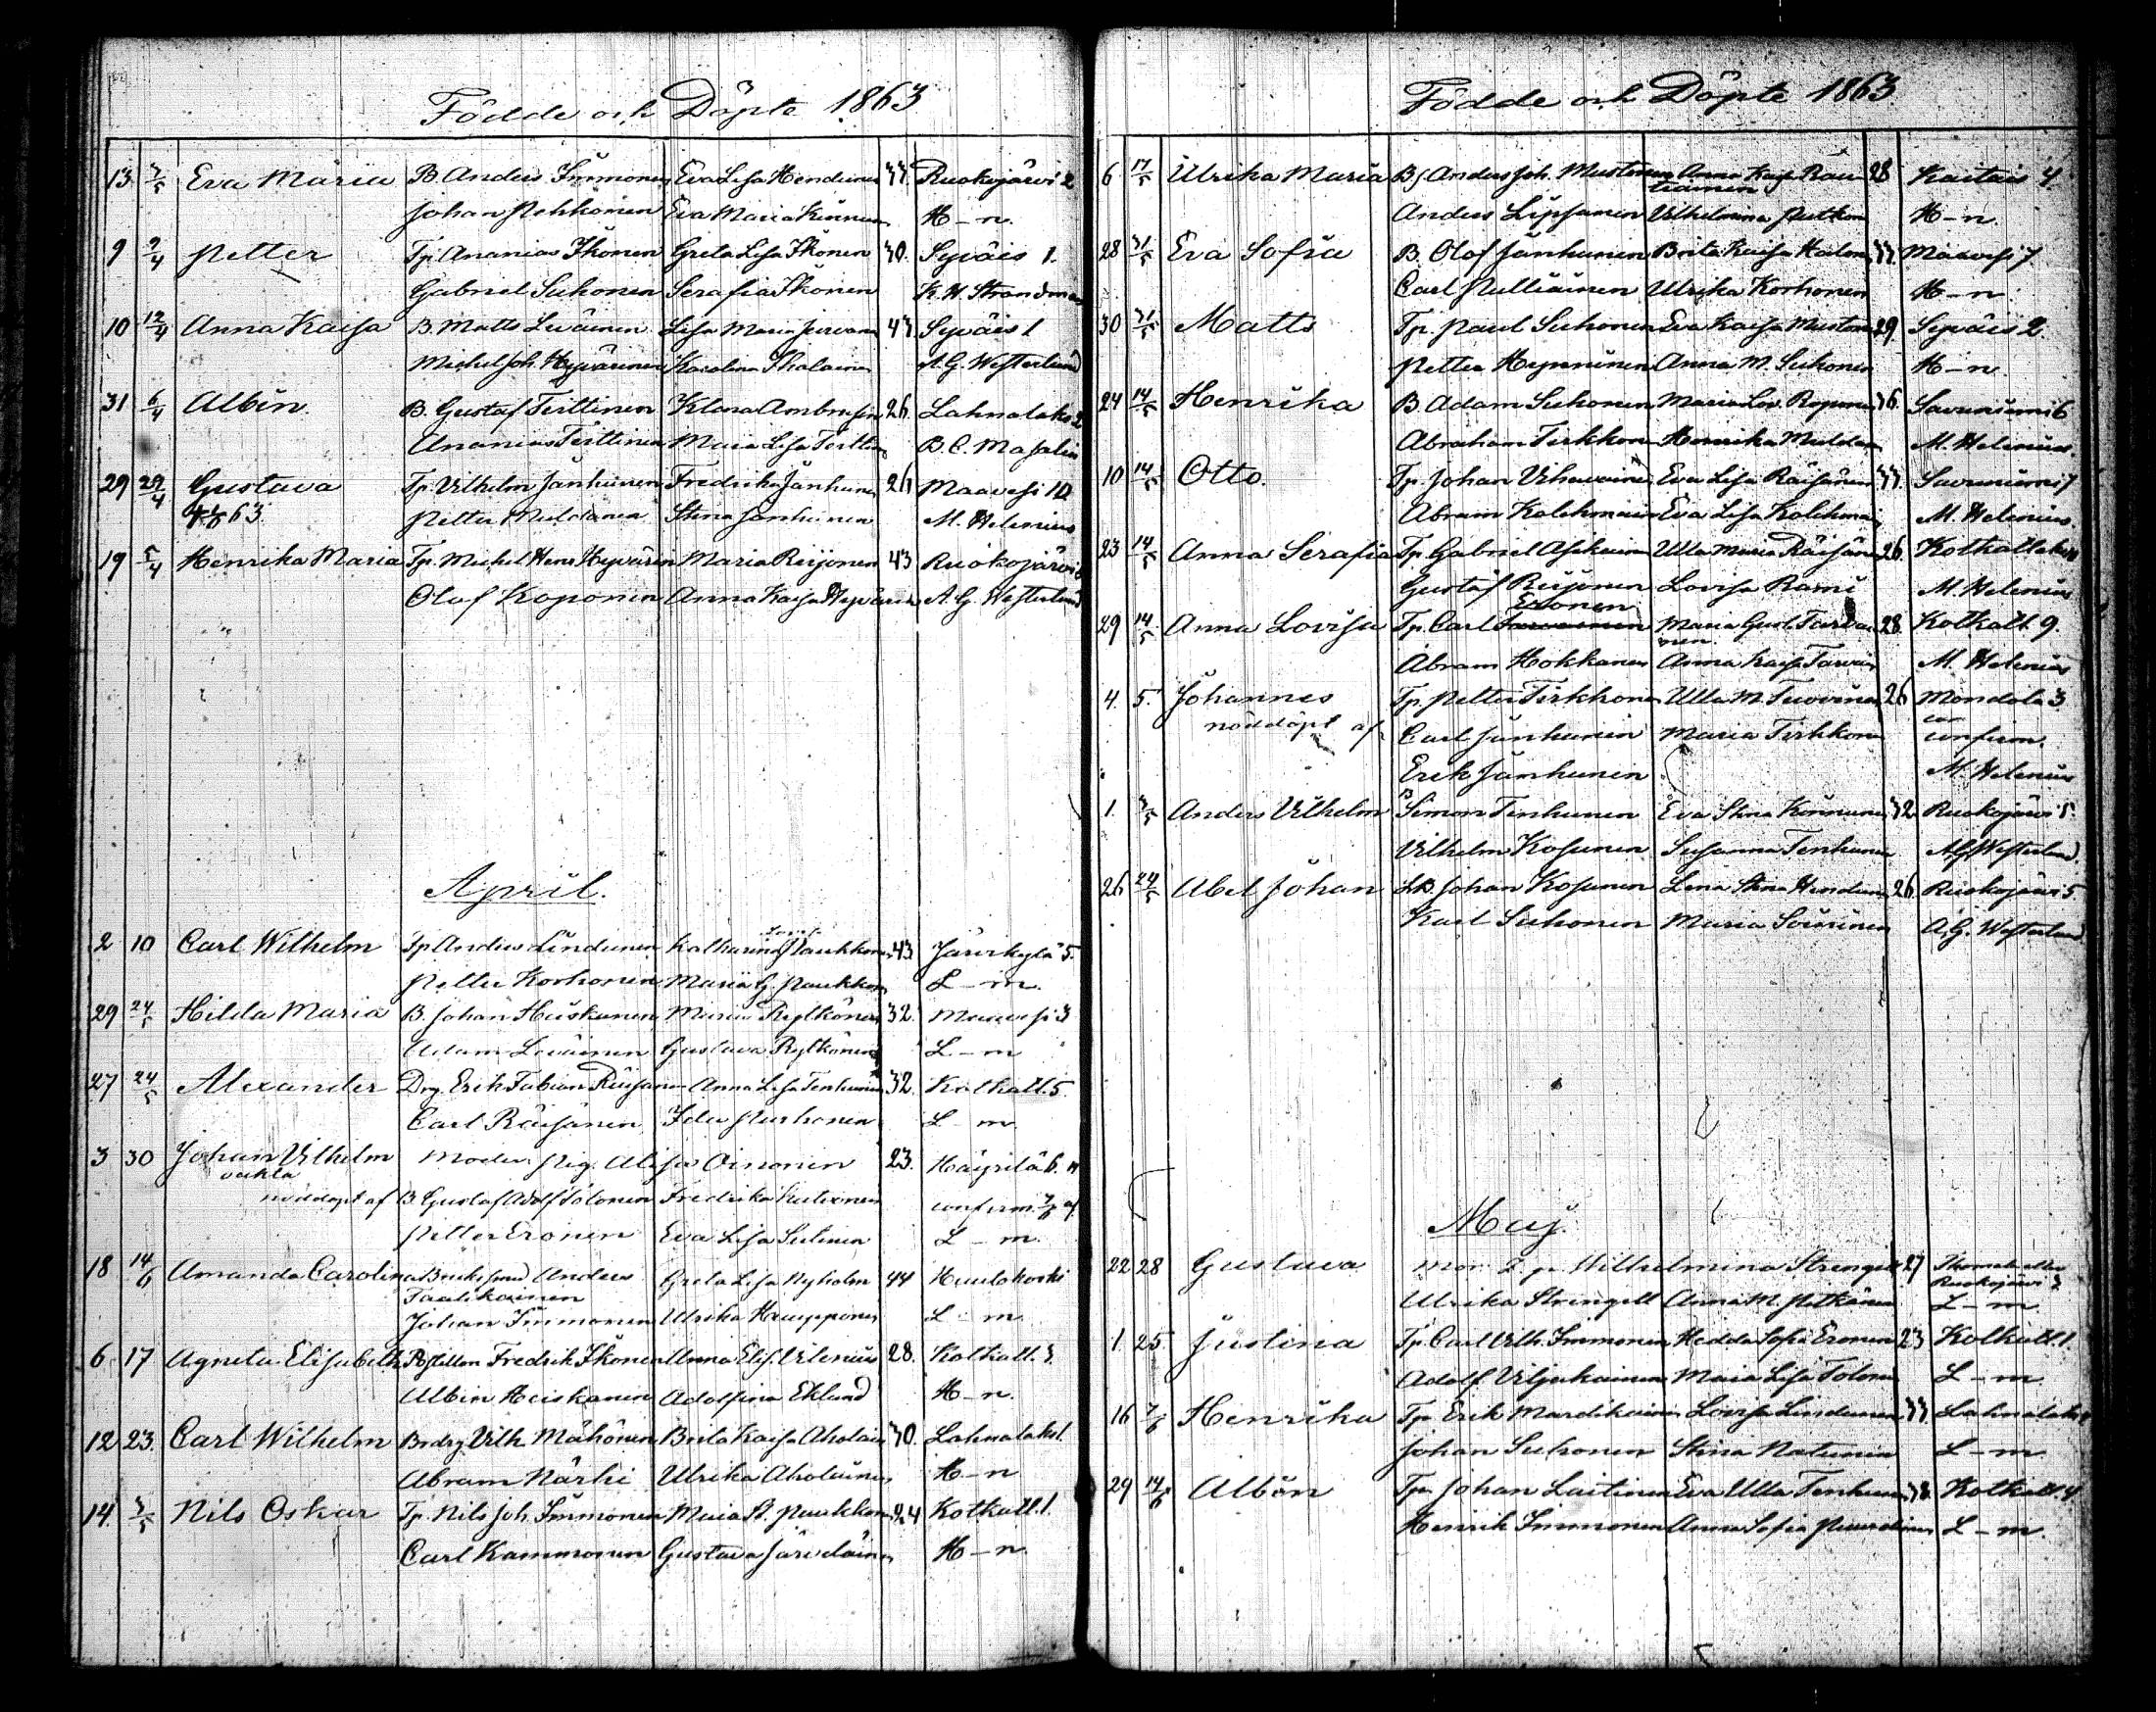 Födde och Döpte 1863
13 3/5 Eva Maria B. Anders Immonen Eva Lisa Hendunen 33. Ruokojärvi 2
Johan Pehkonen Eva Maria Kinnunen H-n.
9 9/4 Petter Tp. Ananias Ikonen Greta Lisa Ikonen 30. Syväis 1.
Gabriel Suhonen Serafia Ikonen K. H. Strandman
10 12/4 Anna Kaisa B. Matts Leväinen Lisa Maria 43 Syväis 1
Michel Joh. Hyvärinen Karolina A. G. Westerlund
31 6/4 Albin. B. Gustaf Teittinen Klara Ambrosin 26. Lahnalaks 2
Ananias Teittinen Maria Lisa Teittin B. C. Masalin
29 29/4 Gustava Tp. Vilhelm Jänhunen Fredrika Jänhunen 26 Maavesi 10
63. Petter Muldanen Stina Janhunen M. Helenius
19 5/4 Henrika Maria Tp. Michel Henr. Hyvärin Maria Reijonen 43 Ruokojärvi
Olof Koponen Anna Kaisa Hyvärin A. G. Westerlund
April.
2 10 Carl Wilhelm Tp. Anders Lindunen Katharina Lovisa Paukkonen 43 Järvikylä 5.
Petter Korhonen Maria G. Paukkon L-m.
29 24/5 Hilda Maria B. Johan Heiskanen Maria Rytkönen 32. Maavesi 3
Adam Leväinen Gustava Rytkönen L-m
27 24/5 Alexander Drg. Erik Fabian Räisänen Anna Lisa Tenhunen 32. Kotkatl. 5.
Carl Räisänen Ida Purhonen L-m.
3 30 Johan Vilhelm Moder: Pig. Alisa Oinonen 23. Häyrilä 6.
oäkta
nöddöpt af B. Gustaf Adolf Tolonen Fredrika confirm. 7/6 af
Petter Eronen Eva Lisa Sulinen L-m.
18 14/6 Amanda Carolina Bruksmed Anders Greta Lisa Nyholm 44 Huutokoski
Taalikainen
Johan Immonen Ulrika Kauppinen L-m.
6 17 Agneta Elisabeth Postillon Fredrik Ikonen Anna Elis. Vilenius 28. Kotkatl. 3.
Albin Heiskanen Adolfina Eklund H-n.
12 23. Carl Wilhelm Brdrg Vilh. Mähönen Brita Kaisa Aholain 30. Lahnalaks 1.
Abram Närhi Ulrika Aholainen H-n
14. 3/5 Nils Oskar Tp. Nils Joh. Immonen Maria St. Paukkon 24 Kotkatl. 1.
Carl Kammonen Gustava Järveläinen H-n.
Födde och Döpte 1863
6 17/5 Ulrika Maria Bs. Anders Joh. Mustonen Anna Kaisa Rau- 28 Kaitais 4.
tiainen
Anders Lipsanen Vilhelmina Putkon H-n.
28 31/5 Eva Sofia B. Olof Jänhunen Brita Kaisa Halon 33. Maavesi 7.
Carl Pulliainen Ulrika Korhonen H-n.
30 31/5 Matts Tp. Paul Suhonen Eva Kaisa Muston 29. Syväis 2.
Petter Hynninen Anna M. Suhonen H-n.
24 14/5 Henrika B. Adam Suhonen Maria Lov. Roponen 36. Savuniemi 6
Abraham Tirkkon Henrika Muldan M. Helenius.
10 14/5 Otto. Tp. Johan Vihavainen Eva Lisa Räisänen 33. Savuniemi 7
Abram Kolehmain Eva Lisa Kolehmain M. Helenius.
23 14/5 Anna Serafia Tp. Gabriel Asikain Ulla Maria Räisän 26. Kotkatlaks
Gustaf Reijonen Lovisa Rami M. Helenius
29 14/5 Anna Lovisa Tp. Carl Eronen Maria Gust. Tarvai- 28. Kotkatl. 9.
nen
Abram Hokkanen Anna Kaisa Tarvain M. Helenius
4. 5. Johannes Tp. Petter Tirkkonen Ulla M. Tuovinen 26 Mondola 3
nöddöpt af Carl Jänhunen Maria Tirkkonen confirm.
Erik Jänhunen M. Helenius
1. 3/5 Anders Vilhelm B Simon Tenhunen Eva Stina Kinnunen 32 Ruokojärvi 5.
Vilhelm Kosunen Susanna Tenhunen A. G. Westerlund.
26 24/5 Abel Johan Johan Kosunen Lena Stina Hendun 26. Ruokojärvi 5.
Karl Suhonen Maria Soininen A. G. Westerlund
Maj.
22 28 Gustava Mor. Wilhelmina Strengell 27
Ruokojärvi 2
Ulrika Strengell Anna M. Pitkänen L-m
1. 25. Justina Tp. Carl Vilh. Immonen Hedda Sofia Eronen 23 Kotkatl. 1.
Adolf Viljakainen Maria Lisa Tolonen L-m.
16 7/6 Henrika Tp. Erik Mardikainen Lovisa Lindunen 33. Lahnalaks
Johan Suhonen Stina Natunen L-m.
29 14/6 Albin Tp. Johan Laitinen Eva Ulla Tenhunen 38. Kotkatl. 4.
Henrik Immonen Anna Sofia L-m.